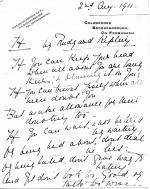 2nd Aug. 1911.
If by Rudyard Kipling
If you can keep your head
when all about you are losing
theirs & blaming it on you;
If you can trust yourself when all
men doubt you
But make allowance for their
doubting too:
If you can wait & not be tired
by waiting
Or being lied about, don't deal
in lies
Or being hated don't give way to
hating
And yet don't look too good, or
talk too wise